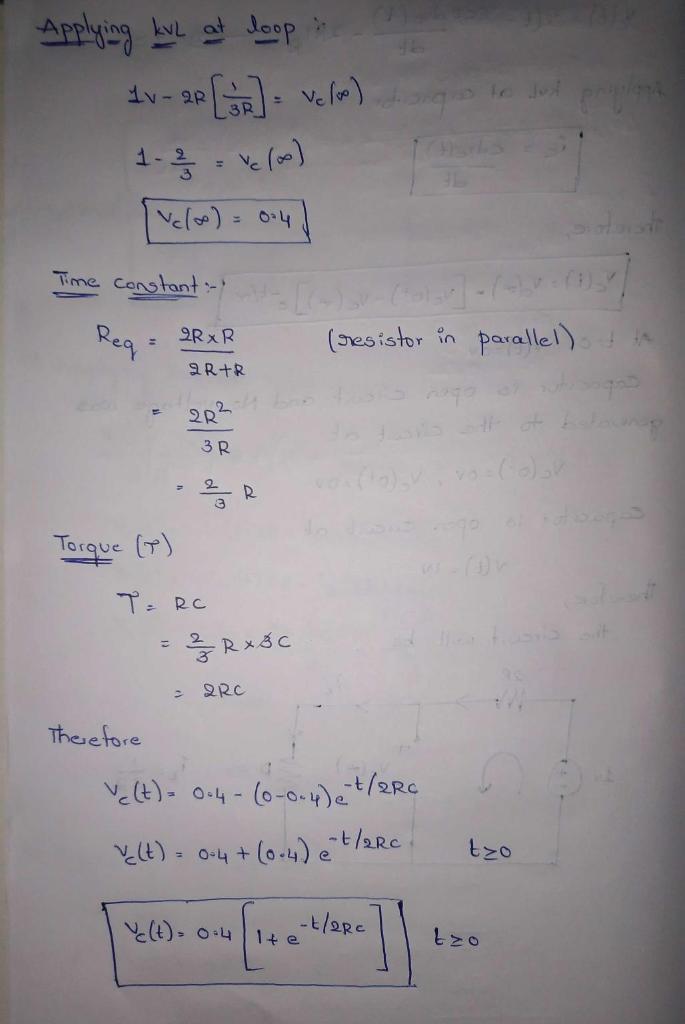 Applying KVL at loop :-
1v - 2R [1/3R] = Vc(∞)
1 - 2/3 = Vc(∞)
Vc(∞) = 0.4
Time constant :-
Req = 2R×R / 2R+R (resistor in parallel)
= 2R² / 3R
= 2/3 R
Torque (τ)
τ = RC
= 2/3 R × 3C
= 2RC
Therefore
Vc(t) = 0.4 - (0-0.4)e^-t/2RC
Vc(t) = 0.4 + (0.4) e^-t/2RC t≥0
Vc(t) = 0.4 [1 + e^-t/2RC] t≥0